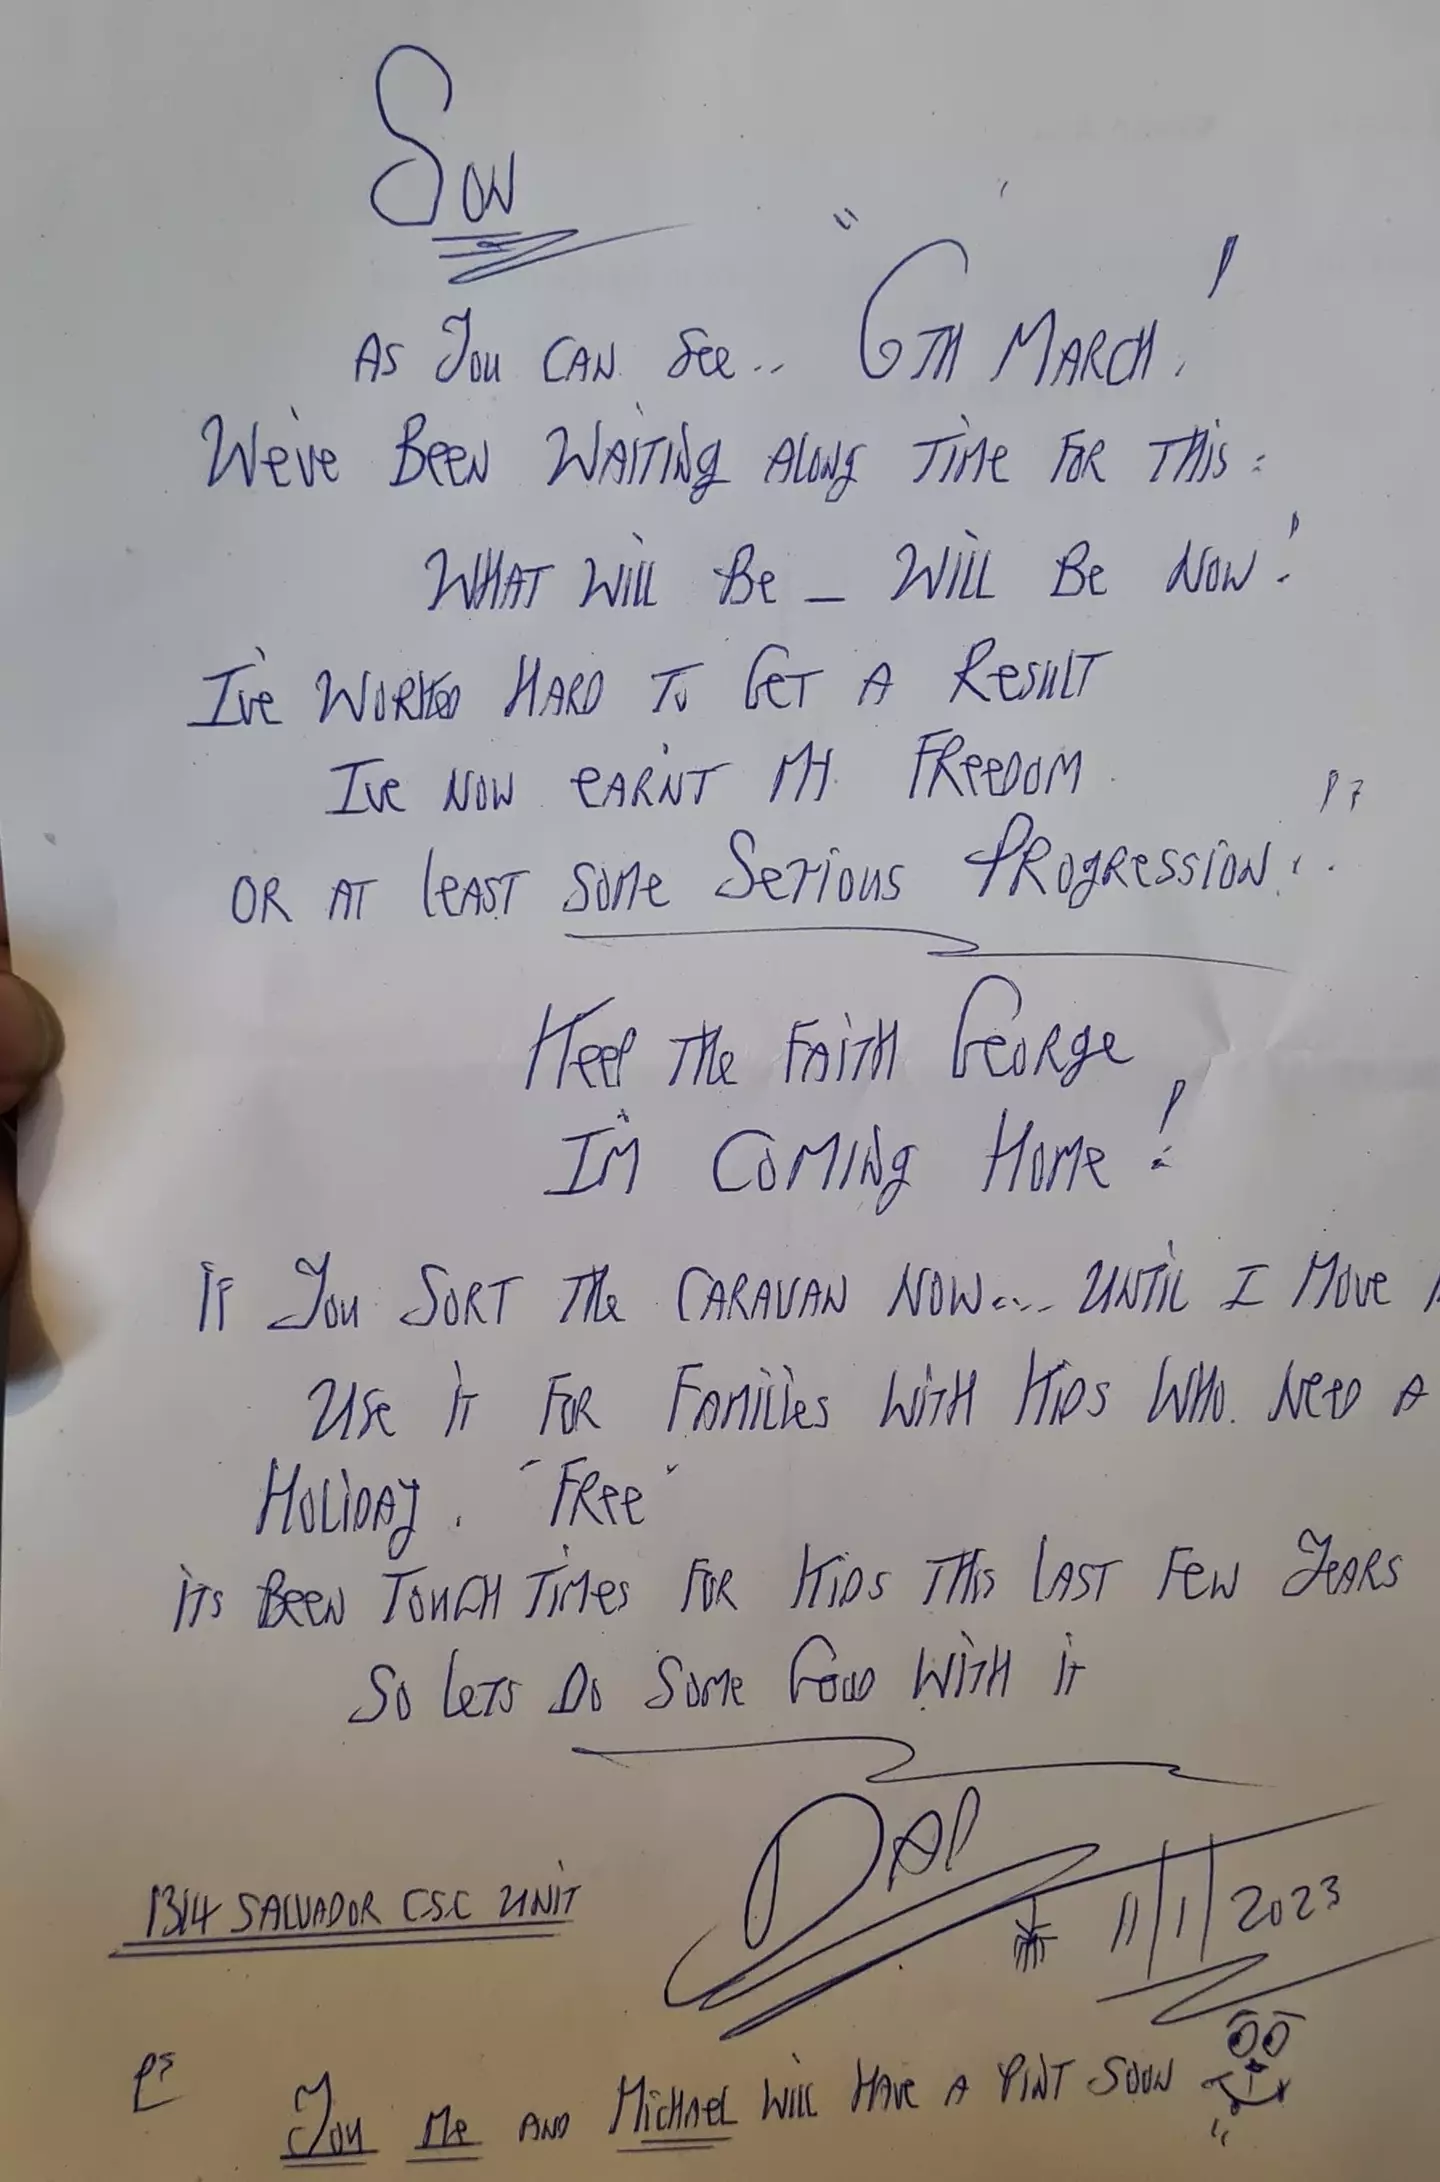 Son
As You Can See.. "6th March!"
We've Been Waiting Along Time For This.
What Will Be _ Will Be Now!
I've Worked Hard To Get A Result
I've Now Earn't My Freedom
Or At Least Some Serious Progression!..
Keep The Faith George
I'm Coming Home!
If You Sort The Caravan Now.... Until I Move
Use It For Families With Kids Who Need A
Holiday. "Free"
Its Been Touch Times For Kids This Last Few Years
So Lets Do Some Good With It
Dad
1314 Salvador C.S.C Unit
11/1/2023
PS You Me And Michael Will Have A Pint Soon